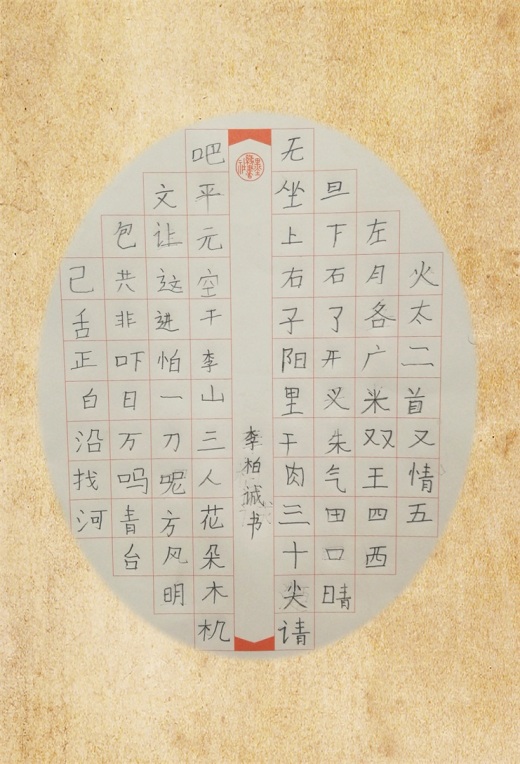 火太二首又情五
左月各广米双王四西
旦下石了开义朱气田口晴
无坐上右子阳里干肉三十尖请
李柏诚书
吧平元空干李山三人花朵木机
文让这进怕一刀呢方风明
包共非吓日万吗青台
己舌正白沿找河